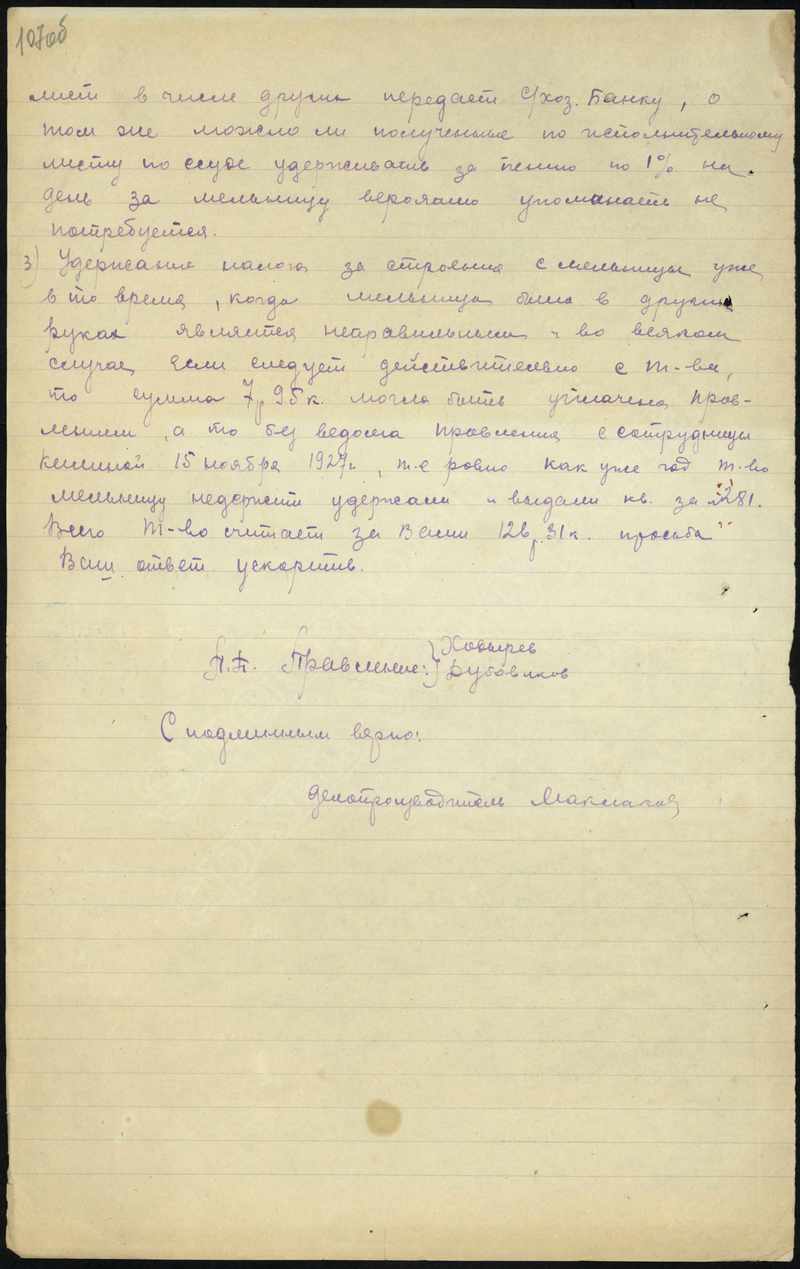 107об
лист в числе других передает С/хоз. Банку, о
том же можно ли полученные по исполнительному
листу по ссуде удерживать за пению по 1% на
день за мельницу вероятно упоминать не
потребуется.
3) Удержание налога за строения с мельницы уже
в то время, когда мельница была в других
руках является неправильным и во всяком
случае, если следует действительно с т-ва,
то сумма 7р 95к. могла быть уплачена прав-
лением, а то без ведома правления с сотрудницы
15 ноября 1927г, т-е ровно как уже год т-во
мельницу недержит удержали и выдали кв. за №281.
Всего т-во считает за Вами 126р.31к. просьба
Ваш ответ ускорить.
п.п. Правление: Ховырев
Дубовиков
С подлинным верно:
делопроизводитель